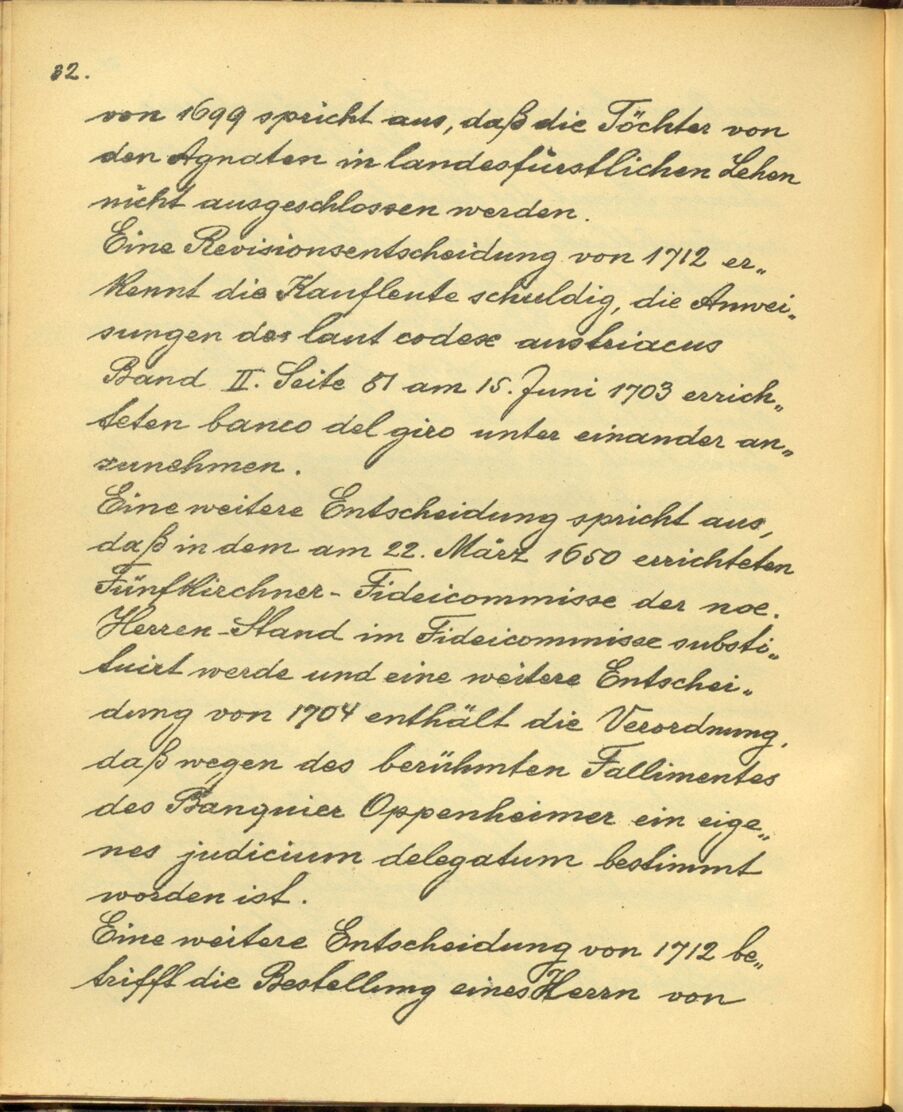 32.
von 1699 spricht aus, daß die Töchter von
den Agnaten in landesfürstlichen Lehen
nicht ausgeschlossen werden.
Eine Revisionsentscheidung von 1712 er„
kennt die Kaufleute schuldig, die Anwei„
sungen des laut codex austriacus
Band II. Seite 51 am 15. Juni 1703 errich„
teten banco del giro unter einander an„
zunehmen.
Eine weitere Entscheidung spricht aus,
daß in dem am 22. März 1650 errichteten
Fünfkirchner-Fideicommisse der noe.
Herren-Stand im Fideicommisse substi„
tuirt werde und eine weitere Entschei„
dung von 1704 enthält die Verordnung,
daß wegen des berühmten Fallimentes
des Banquier Oppenheimer ein eige„
nes judicium delegatum bestimmt
worden ist.
Eine weitere Entscheidung von 1712 be„
trifft die Bestellung eines Herrn von